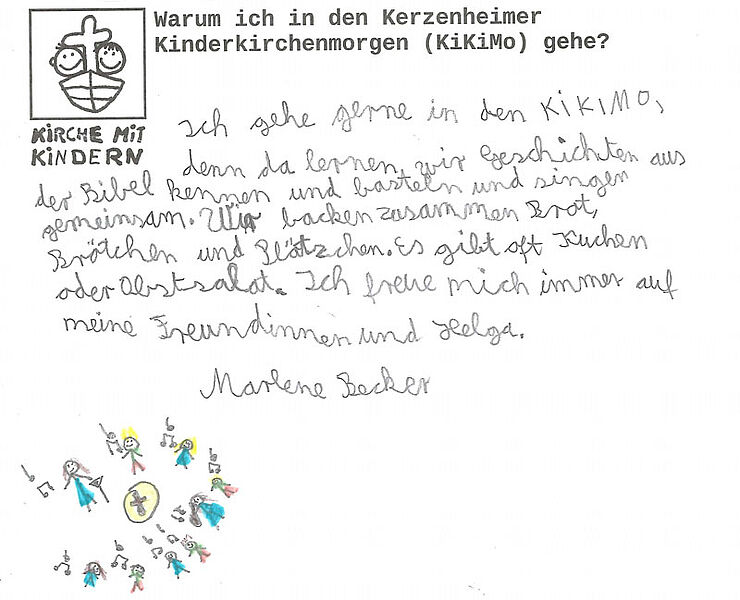 Warum ich in den Kerzenheimer
Kinderkirchenmorgen (KiKiMo) gehe?
KIRCHE MIT
KINDERN
Ich gehe gerne in den KIKIMO,
denn da lernen wir Geschichten aus
der Bibel kennen und basteln und singen
gemeinsam. Wir backen zusammen Brot,
Brötchen und Plätzchen. Es gibt oft Kuchen
oder Obstsalat. Ich freue mich immer auf
meine Freundinnen und Helga.
Marlene Becker